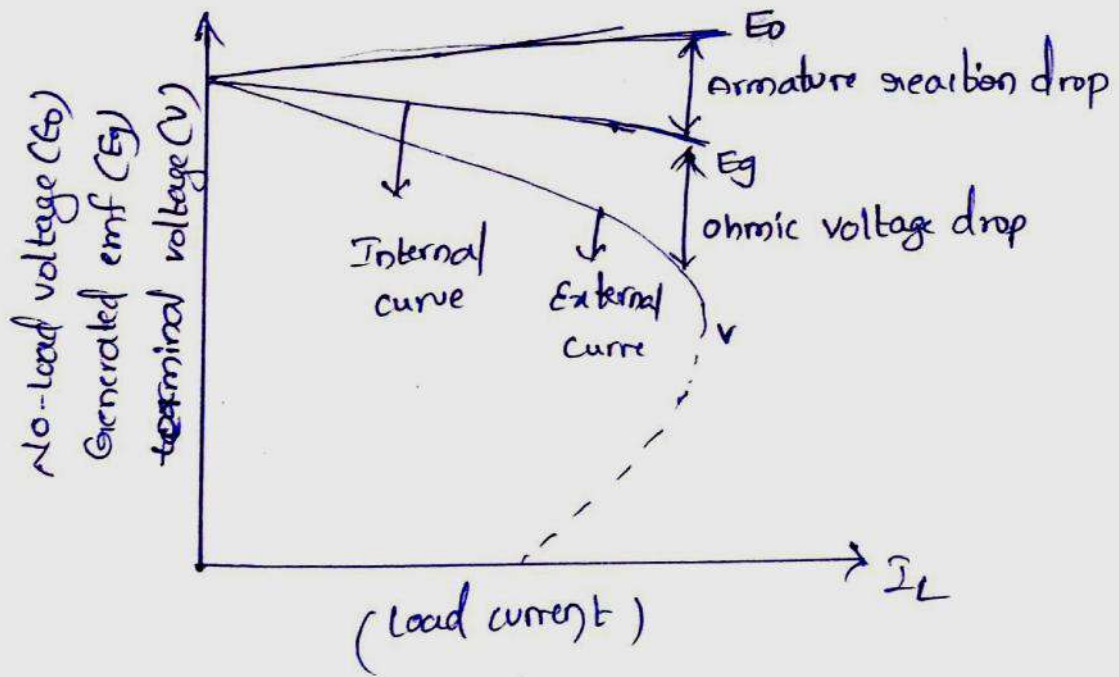 No-Load voltage (E0)
Generated emf (Eg)
terminal voltage (V)
E0
Armature reaction drop
Eg
ohmic voltage drop
Internal
curve
External
Curre
V
IL
(Load current)